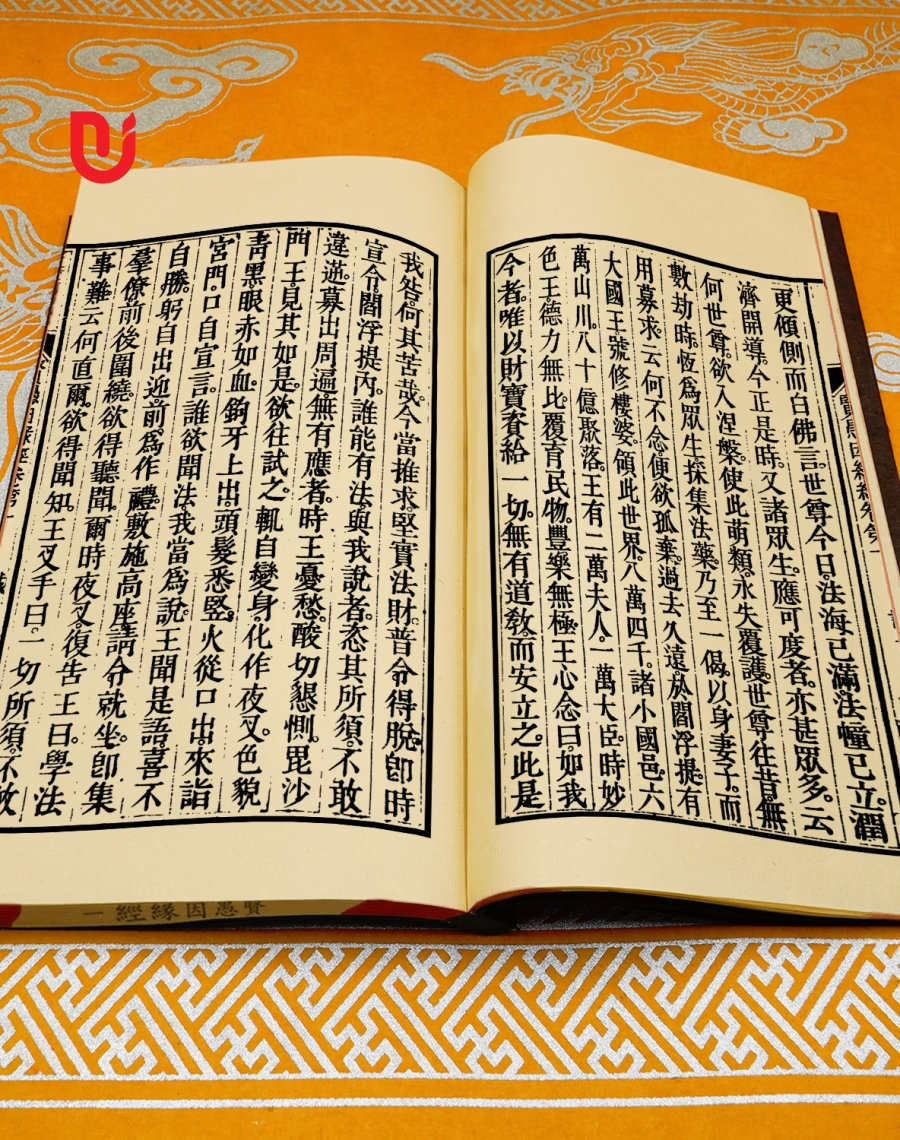 賢愚因緣經卷第一
更傾側而白佛言。世尊今日。法海已滿。法幢已立。潤
濟開導。今正是時。又諸眾生。應可度者。亦甚眾多。云
何世尊。欲入涅槃。使此萌類。永失覆護。世尊往昔無
數劫時。恆為眾生採集法藥。乃至一偈。以身妻子。而
用募求。云何不念便欲孤棄。過去久遠。於閻浮提。有
大國王號修樓婆。領此世界。八萬四千。諸小國邑。六
萬山川。八十億聚落。王有二萬夫人。一萬大臣。時妙
色王。德力無比。覆育民物。豐樂無極。王心念曰。如我
今者。唯以財寶資給一切。無有道教。而安立之。此是
我咎。何其苦哉。今當推求。堅實法財。普令得脫。即時
宣令閻浮提內。誰能有法。與我說者。恣其所須。不敢
違逆。募出周遍。無有應者。時王憂愁。酸切懇惻。毘沙
門王。見其如是。欲往試之。輒自變身。化作夜叉。色貌
青黑眼赤如血。鉤牙上出。頭髮悉竪。火從口出。來詣
宮門。口自宣言。誰欲聞法。我當為說。王聞是語。喜不
自勝。躬自出迎。前為作禮。敷施高座。請令就坐。即集
羣僚。前後圍繞。欲得聽聞。爾時夜叉。復告王曰。學法
事難。云何直爾。欲得聞知。王叉手曰。一切所須。不敢
賢愚因緣經 一